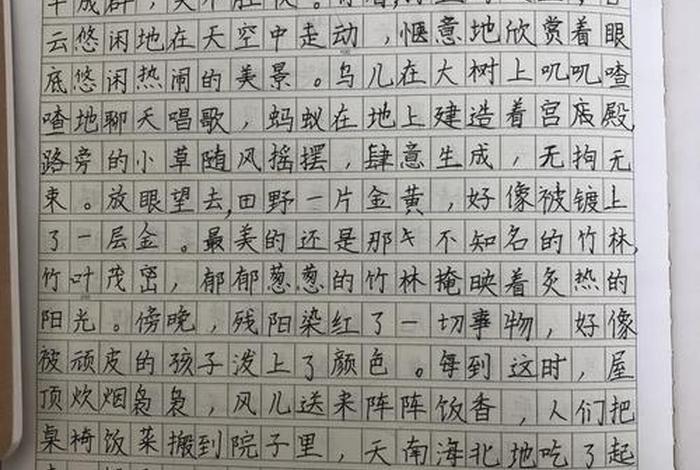 云悠闲地在天空中走动，惬意地欣赏着眼
底悠闲热闹的美景。鸟儿在大树上叽叽喳
喳地聊天唱歌，蚂蚁在地上建造着宫店殿
路旁的小草随风摇摆，肆意生成，无拘无
束。放眼望去，田野一片金黄，好像被镀上
了一层金。最美的还是那个不知名的竹林，
竹叶茂密，郁郁葱葱的竹林掩映着炙热的
阳光。傍晚，残阳染红了一切事物，好像
被顽皮的孩子泼上了颜色。每到这时，屋
顶炊烟袅袅，风儿送来阵阵饭香，人们把
桌椅饭菜搬到院子里，天南海北地吃了起